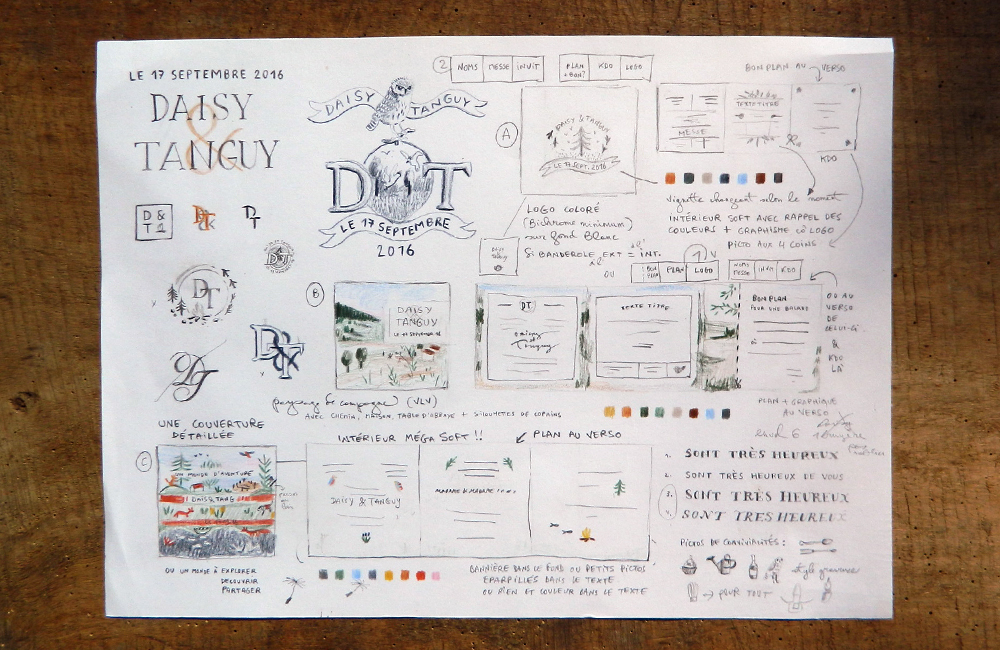 LE 17 SEPTEMBRE 2016
DAISY
&
TANGUY
DAISY TANGUY
D T
LE 17 SEPTEMBRE
2016
D &
T
DT
DT
DT
DT
D&T
DT
2
NOMS MESSE INVIT
PLAN KDO LOGO
BON PLAN AU VERSO
A
DAISY & TANGUY
LE 17 SEPT. 2016
TEXTE TITRE
MESSE
KDO
vignette changeant selon le moment
INTÉRIEUR SOFT AVEC RAPPEL DES
COULEURS + GRAPHISME LOGO
PICTO AUX 4 COINS
LOGO COLORÉ
(Bichromie minimum)
sur fond blanc
SI BANDEROLE EXT = INT.
OU
1
PLAN LOGO
NOMS
MESSE
KDO
B
DAISY
TANGUY
DT
Daisy
&
Tanguy
TEXTE TITRE
BON PLAN
POUR UNE BALADE
OU AU
VERSO
DE
CELUI-CI
&
KDO
LÀ
paysage de campagne (VLV)
AVEC CHEMIN, MAISON, TABLE D'ABBAYE + SILOUHETTES DE COPAINS
PLAN + GRAPHIQUE
AU VERSO
UNE COUVERTURE
DÉTAILLÉE
INTÉRIEUR MÉGA SOFT !!
PLAN AU VERSO
C
UN MONDE D'AVENTURE
DAISY & TANG
DAISY & TANGUY
MADAME & MADAME
OU UN MONDE À EXPLORER
DÉCOUVRIR
PARTAGER
BANNIÈRE DANS LE FOND OU PETITS PICTOS
ÉPARPILLÉS DANS LE TEXTE.
OU RIEN ET COULEUR DANS LE TEXTE
1. SONT TRÈS HEUREUX
2. SONT TRÈS HEUREUX DE VOUS
3. SONT TRÈS HEUREUX
4. SONT TRES HEUREUX
PICTOS DE CONVIVIALITÉS :
style gravure
→ POUR TOUT